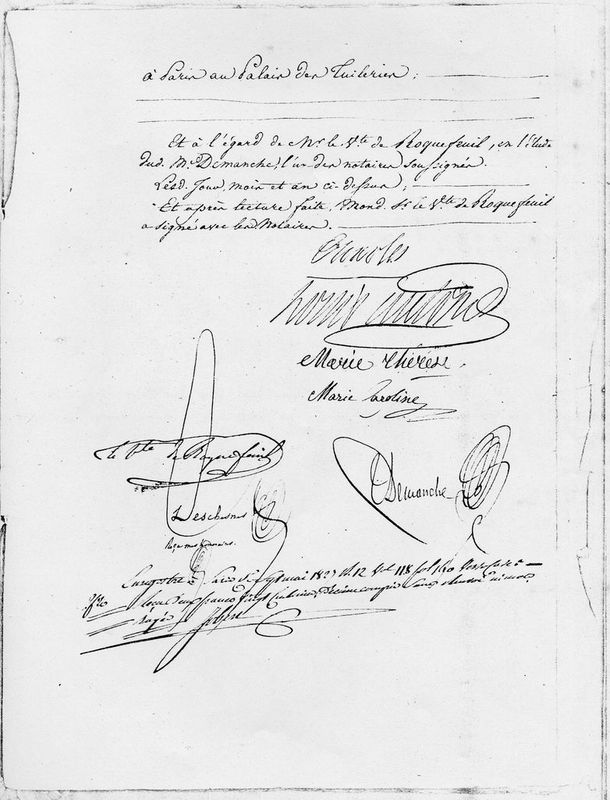 à Paris au Palais des Tuileries ;
Et à l'égard de Mr. le Vte de Roquefeuil, en l'étude
dud. Me. Demanche, l'un des notaires soussignés
Lesd. Jour, mois et an ci-dessus ;
Et après lecture faite, Mond. Sr. le Vte. de Roquefeuil
a signé avec les Notaires.
Charles
Louis Antoine
Marie Thérèse
Marie Caroline
le Vte de Roquefeuil
Demanche
Deschesnes
Enregistré à Paris mai 1827 Vol 118 fol 160
reçu deux francs vingt centimes, décime compris